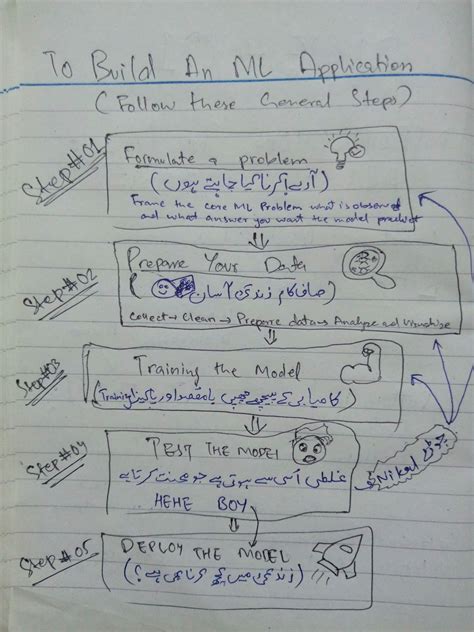 To Build An ML Application
(Follow these General Steps)
Step#01
Formulate a problem
Frame the core ML Problem what is observed
and what answer you want the model predict
Step#02
Prepare Your Data
صاف کام زندگی آسان
Collect → Clean → Prepare data → Analyze and Visualize
Step#03
Training the Model
(Training کامیابی کے پیچھے چھپی بامقصد اور پاکیزہ)
Step#04
TEST THE MODEL
غلطی اسی سے ہوتی ہے جو محنت کرتا ہے
HEHE BOY
Nikal
Step#05
DEPLOY THE MODEL